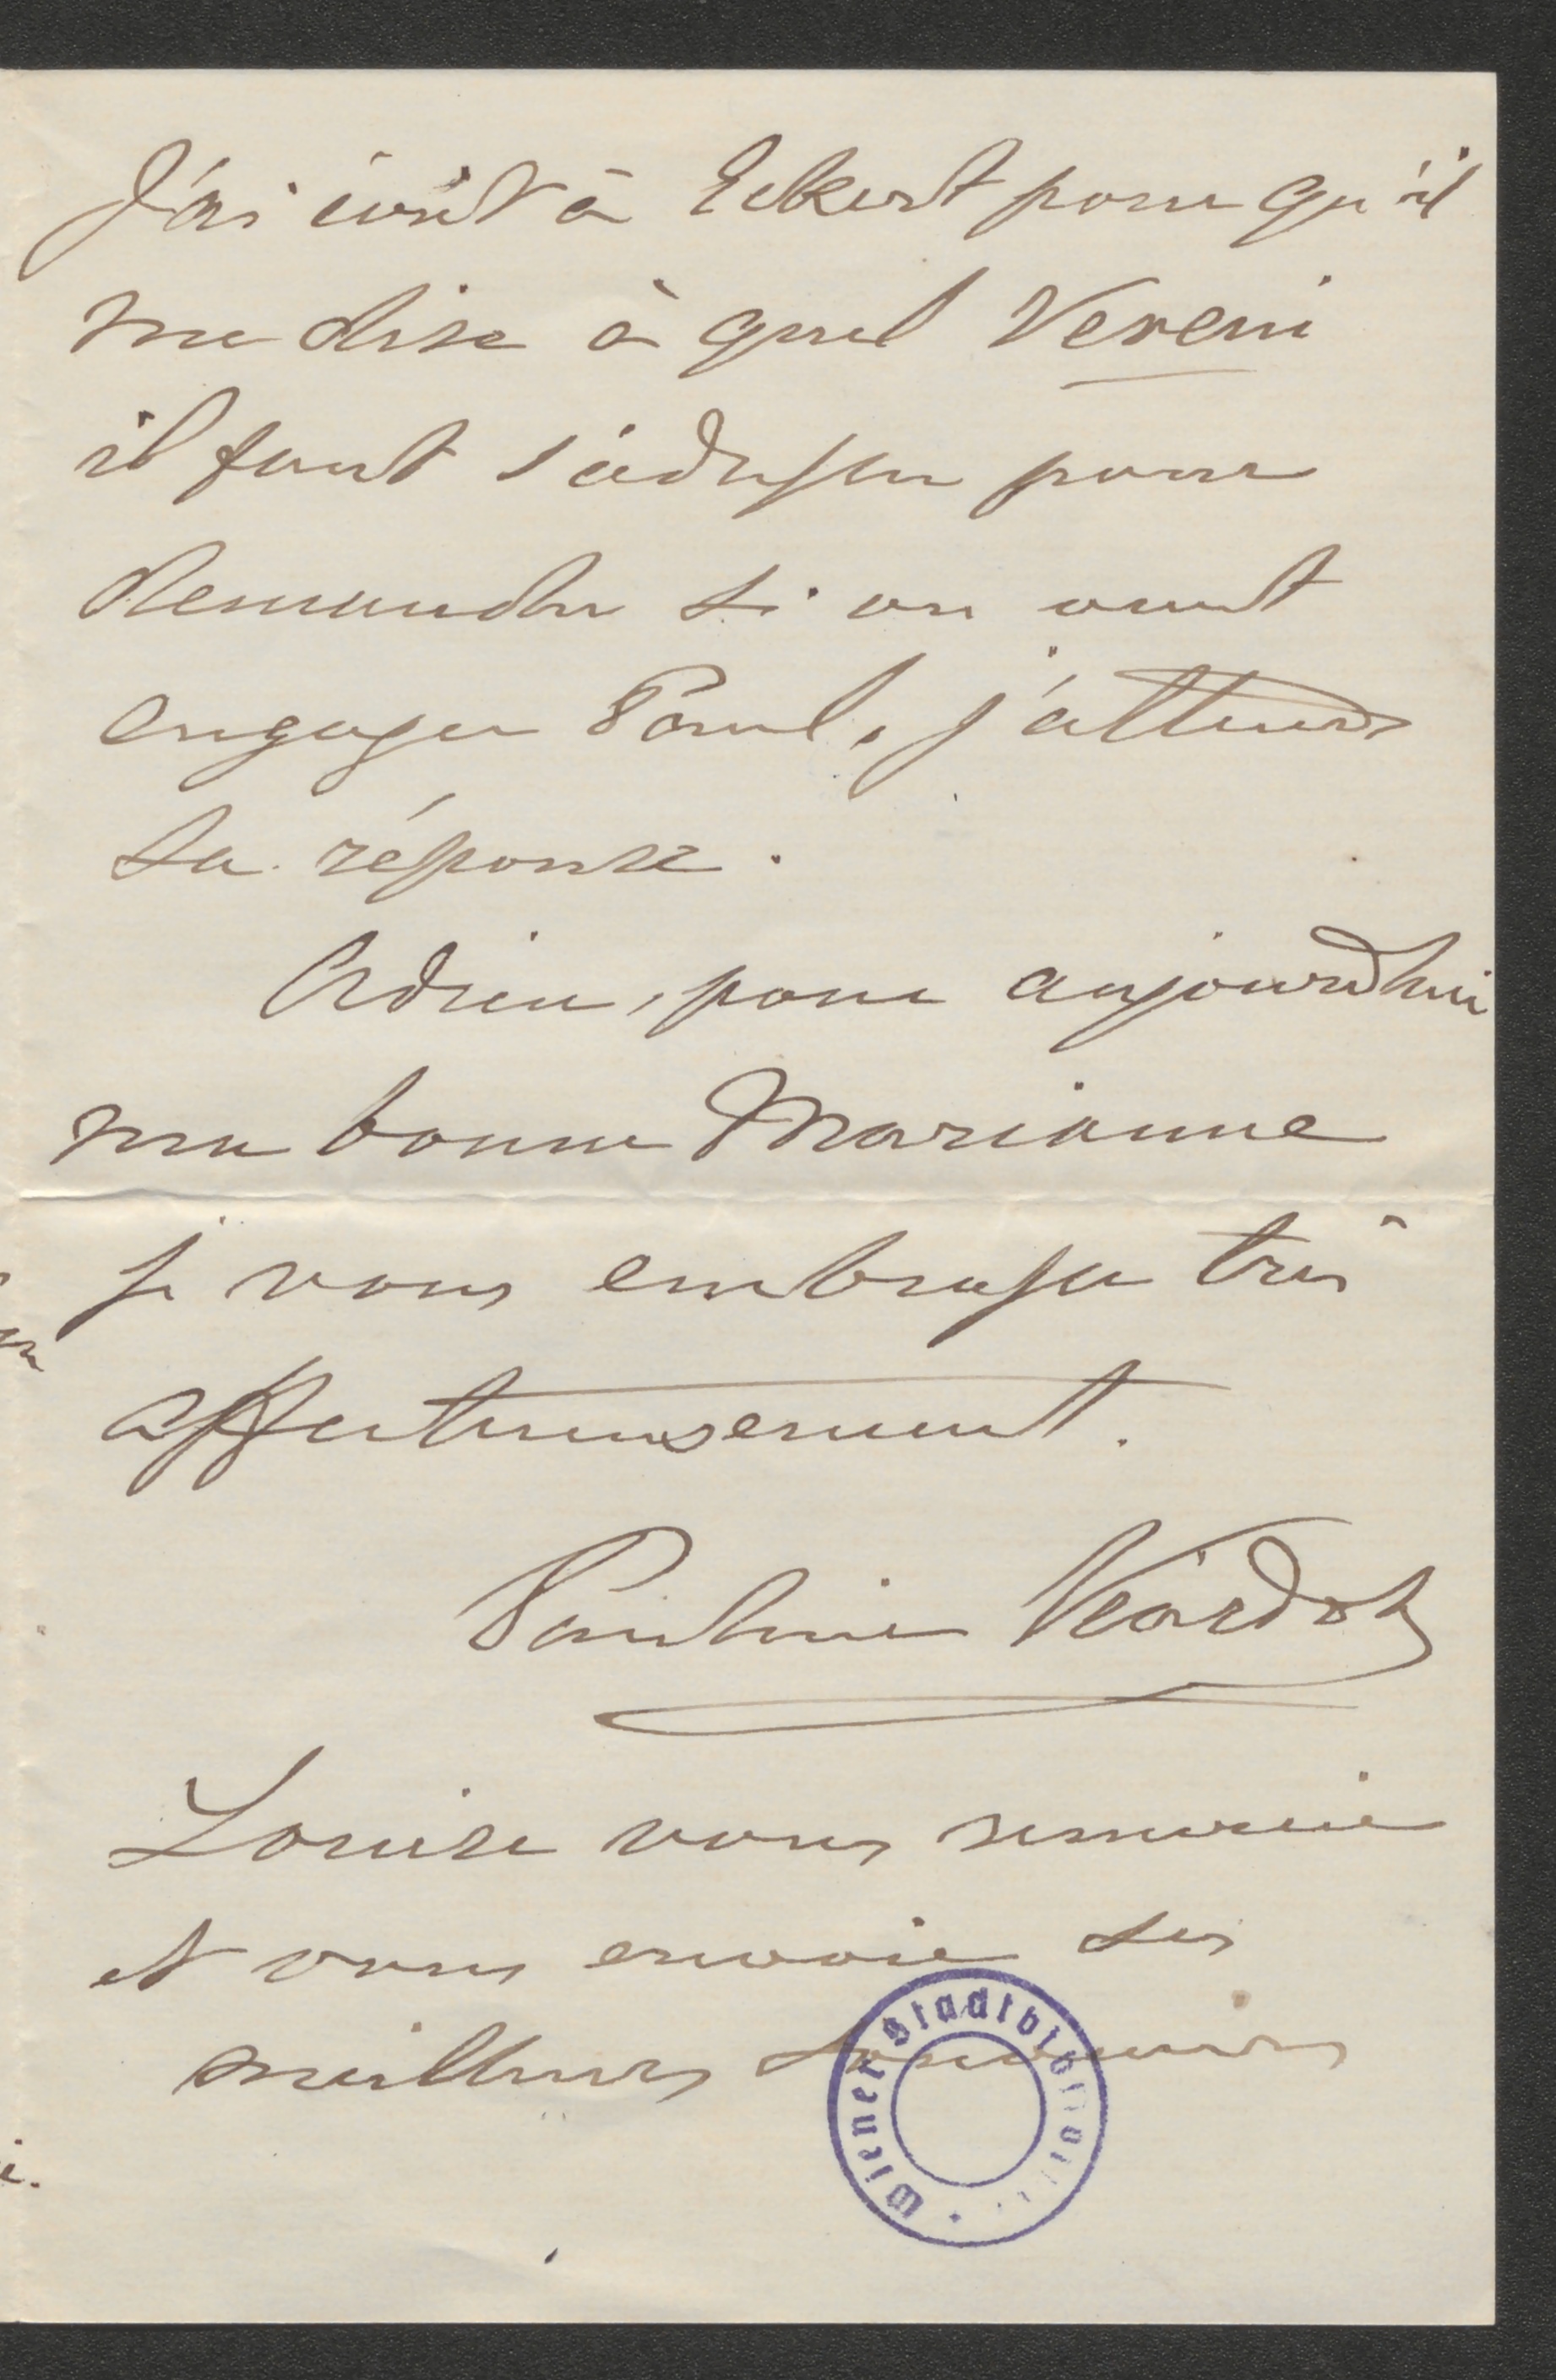 J'ai écrit à Eckert pour qu'il
me dise à quel Verein
il faut s'adresser pour
demander si on veut
engager Paul, j'attends
sa réponse.
Adieu, pour aujourdhui
ma bonne Marianne
je vous embrasse très
affectueusement.
Pauline Viardot
Louise vous remercie
et vous envoie ses
meilleurs souvenirs
Wiener Stadtbibliothek